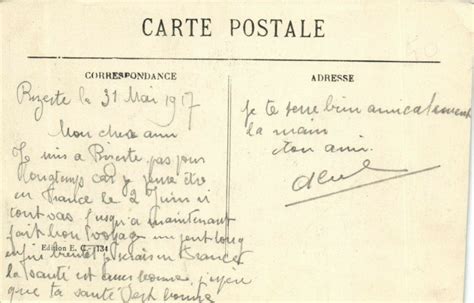 CARTE POSTALE
CORRESPONDANCE
ADRESSE
Bizerte le 31 Mai 1917
Mon cher ami
Je suis a Bizerte pas pour
longtemps car je pense être
en France le 2 Juin ii
tout vas jusqu'a maintenant
fait bon voyage un peut long
enfin bientot je serais en France
la santé est asse bonne j'espère
que ta santé
Edition E. C.
je te serre bien amicalement
la main
ton ami